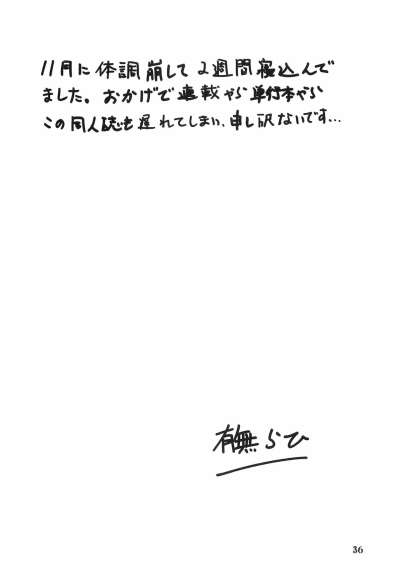 11月に体調崩して2週間寝込んで
ました。おかげで連載やら単行本やら
この同人誌も遅れてしまい、申し訳ないです...
有無らひ
36